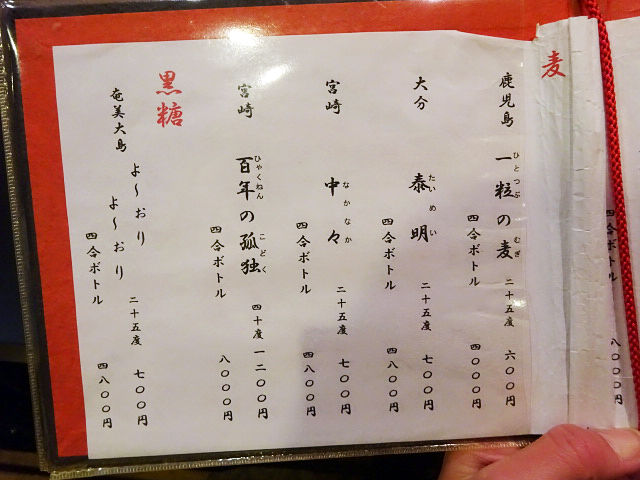 麦
鹿児島 一粒の麦 二十五度 六〇〇円
ひとつぶ むぎ
四合ボトル 四〇〇〇円
大分 泰明 二十五度 七〇〇円
たいめい
四合ボトル 四八〇〇円
宮崎 中々 二十五度 七〇〇円
なかなか
四合ボトル 四八〇〇円
宮崎 百年の孤独 四十度 一二〇〇円
ひゃくねん こどく
四合ボトル 八〇〇〇円
黒糖
奄美大島 よ〜おり よ〜おり 二十五度 七〇〇円
四合ボトル 四八〇〇円